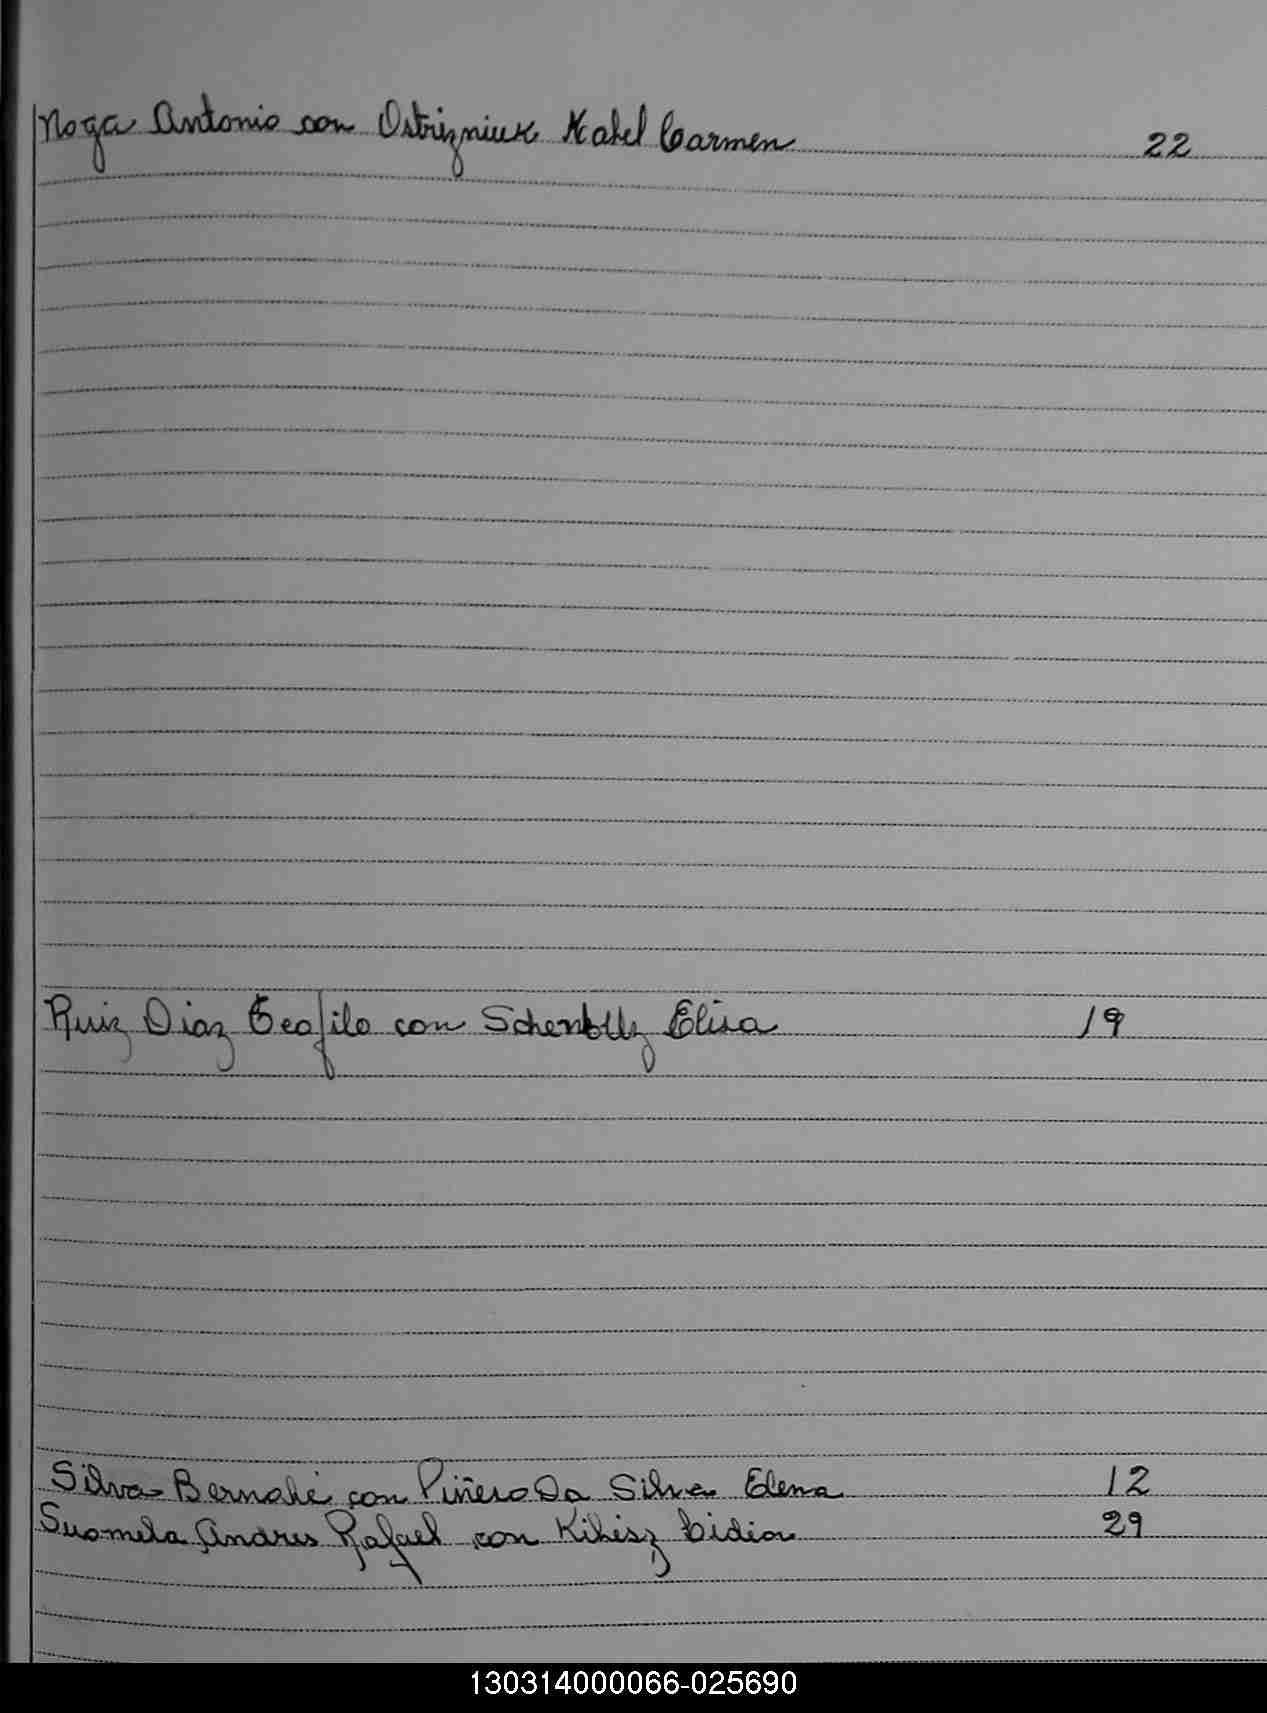 Noga Antonio con Ostrizniuk Mabel Carmen 22
Ruiz Diaz Teofilo con Elisa 19
Silva Bernabé con Piñero Da Silva Elena 12
Suomela Andres Rafael con Kibisz Lidia 29
130314000066-025690